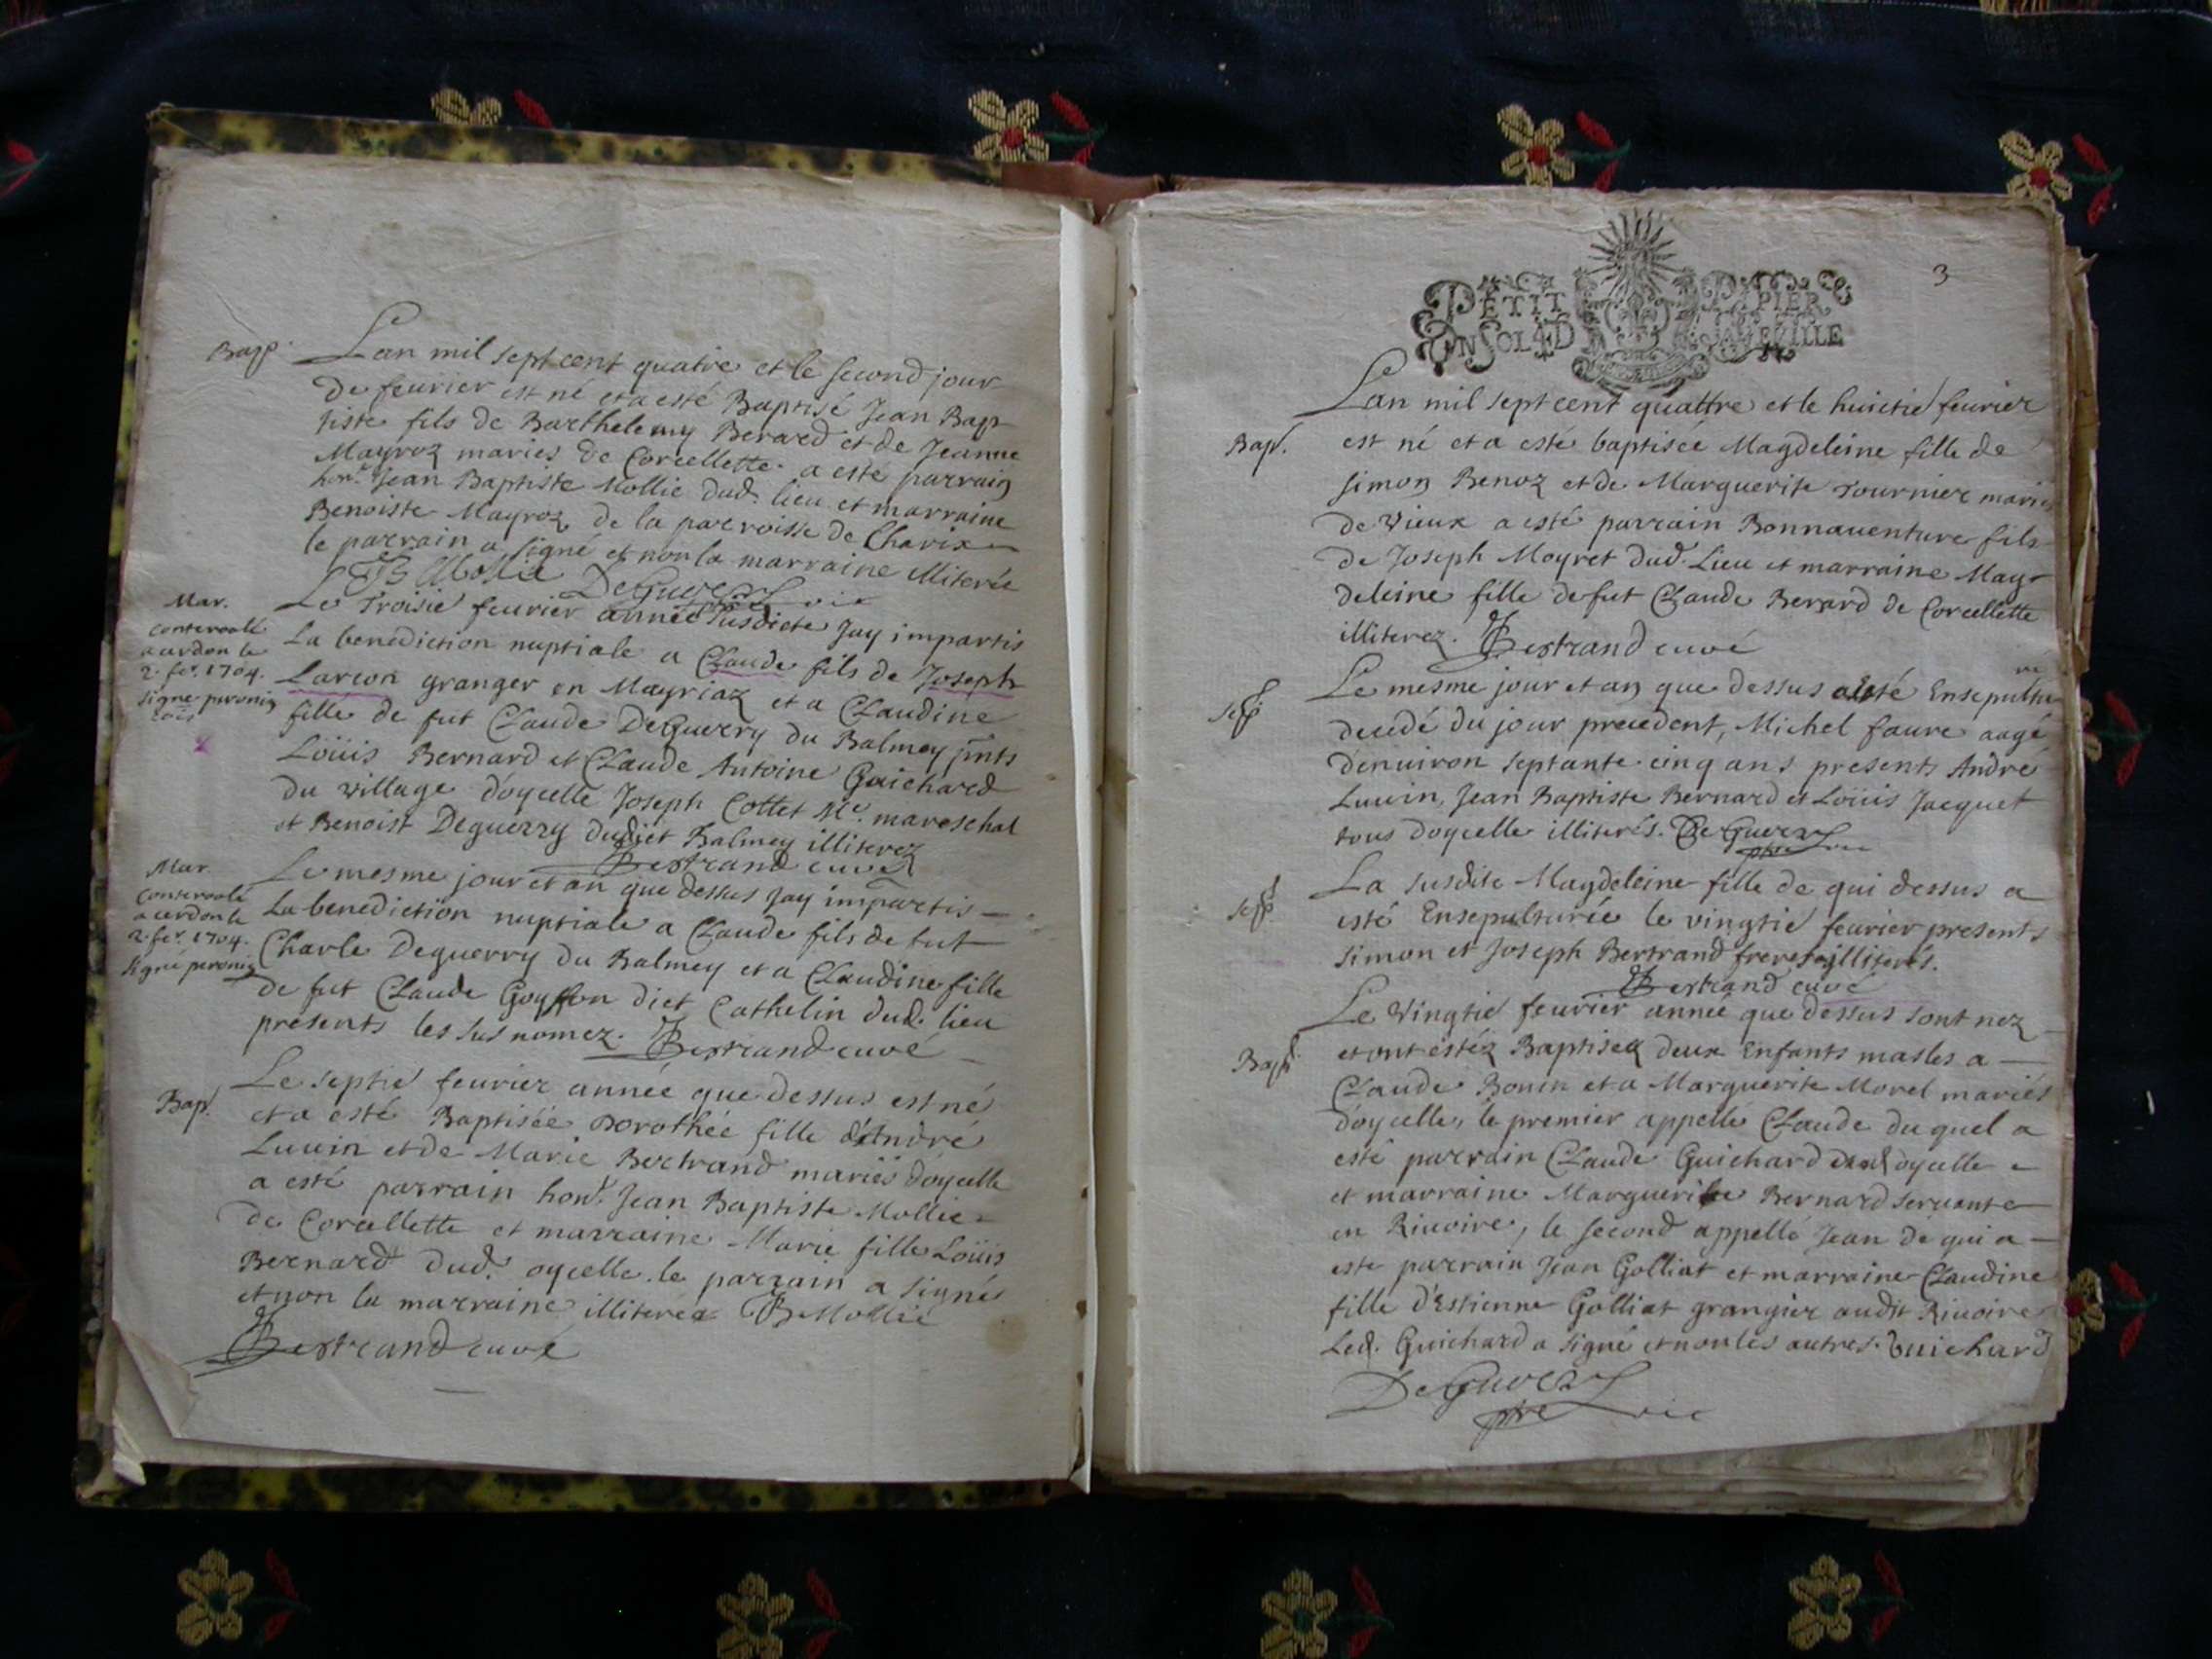 Bapt.
Lan mil sept cent quatre et le second jour
de feurier est né et a esté Baptisé Jean Bap
tiste fils de Barthelemy Berard et de Jeanne
Mayroz mariés de Corcellette. a esté parrain
hon.^e Jean Baptiste Mollie dud. lieu et marraine
Benoiste Mayroz de la parroisse de Charix
le parrain a signé et non la marraine illiterée
JB Mollie DeGuerry vic
Mar.
Conterollé
a cerdon le
2. fe.^r 1704.
signé peronin
Le Troisié feurier année susdicte Jay impartis
La benediction nuptiale a Claude fils de Joseph
Larcon granger en Mayriaz et a Claudine
fille de fut Claude DeGuerry du Balmey pnts
Loüis Bernard et Claude Antoine Guichard
du village d'oycelle Joseph Cottet M.^e mareschal
et Benoist Deguerry dudict Balmey illiterez
Bertrand curé
Mar.
Conterollé
a cerdon le
2. fe.^r 1704.
signé peronin
Le mesme jour et an que dessus Jay impartis
La benediction nuptiale a Claude fils de fut
Charle Deguerry du Balmey et a Claudine fille
de fut Claude Goyffon dict Cathelin dud. lieu
presents les sus nomez. Bertrand curé
Bap.^t
Le septié feurier année que dessus est né
et a esté Baptisée Dorothée fille d'André
Luuin et de Marie Bertrand mariés d'oycelle
a esté parrain hon.^e Jean Baptiste Mollie
de Corcellette et marraine Marie fille Loüis
Bernard dud. oycelle. le parrain a signés
et non la marraine illiterée JB Mollie
Bertrand curé
3
PETIT PAPIER
UN SOL 4 D LA FEVILLE
Bap.^t
Lan mil sept cent quattre et le huictié feurier
est né et a esté baptisée Magdeleine fille de
simon Benoz et de Marguerite Tournier mariés
de Vieux a esté parrain Bonnauenture fils
de Joseph Moyret dud. Lieu et marraine Mag
deleine fille de fut Claude Berard de Corcellette
illiterez. Bertrand curé
Sep.
Le mesme jour et an que dessus a esté Ensepultu
ré
decedé du jour precedent, Michel faure aagé
denuiron septante cinq ans presents André
Luuin, Jean Baptiste Bernard et Loüis Jacquet
tous doycelle illiterés. DeGuerry
ptre vic
Sep.
La susdite Magdeleine fille de qui dessus a
esté Ensepulturée le vingtié feurier presents
simon et Joseph Bertrand freres illiterés.
Bertrand curé
Bapt.
Le Vingtié feurier année que dessus sont nez
et ont estéz Baptisez deux Enfants masles a
Claude Bonin et a Marguerite Morel mariés
d'oycelle, le premier appellé Claude du quel a
esté parrain Claude Guichard oycelle
et marraine Marguerite Bernard seruante
en Riuoire, le second appellé Jean de qui a
esté parrain Jean Golliat et marraine Claudine
fille d'Estienne Golliat grangier audit Riuoire
Led. Guichard a signé et non les autres. Guichard
DeGuerry
ptre vic